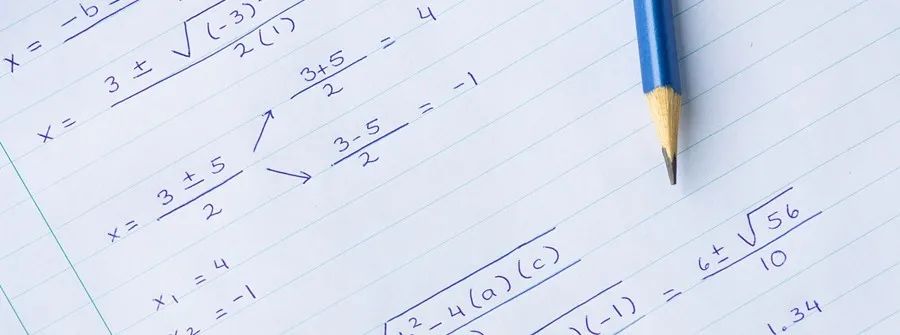 x = -b
x = 3 ± √(-3)² / 2(1)
3+5 / 2 = 4
x = 3 ± 5 / 2
3-5 / 2 = -1
x₁ = 4
x₂ = -1
² - 4(a)(c)
)(-1) = 6 ± √56 / 10
1.34